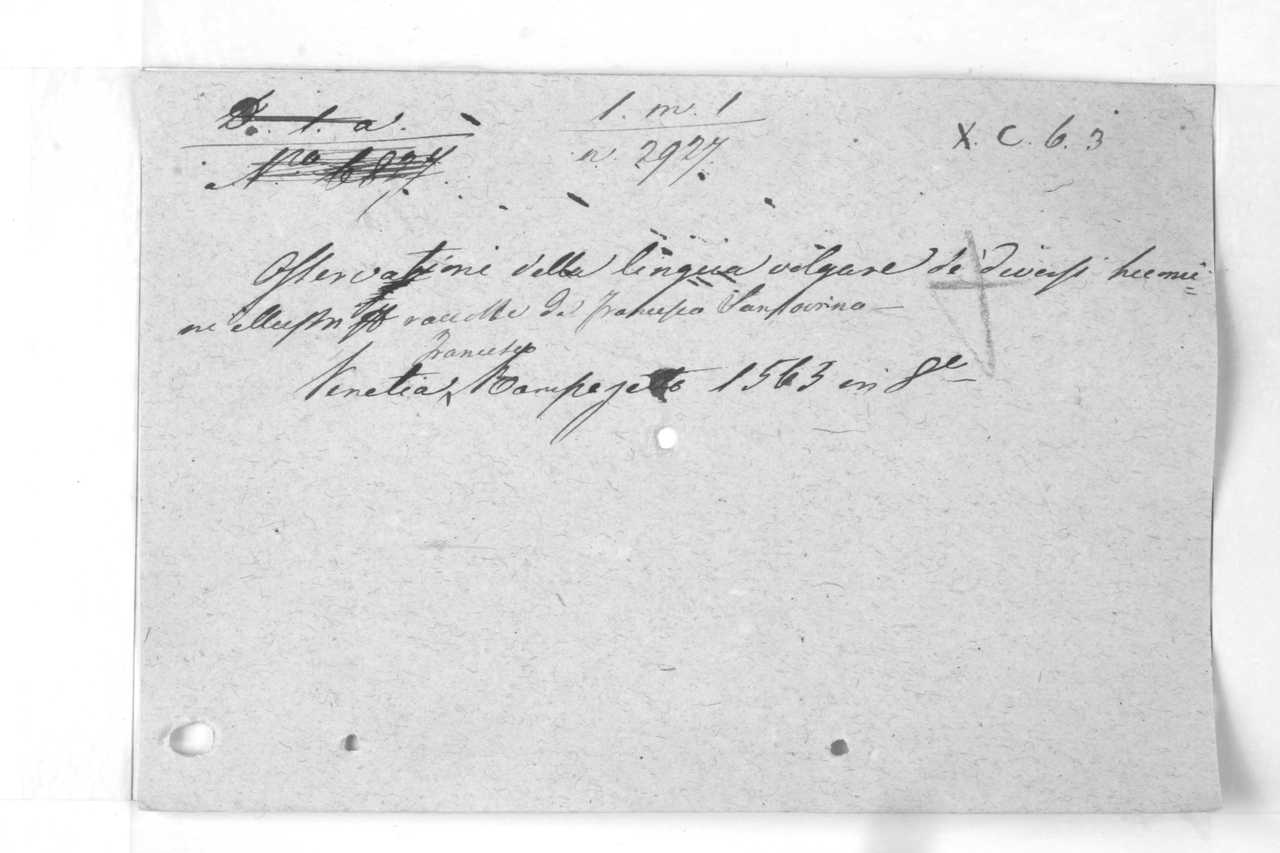 D. 1. a.
1. m. 1
X. C. 6. 3
N.ro
n. 2927.
Osservationi della lingua volgare de' diversi huomi=
ni illustri raccolte da Francesco Sansovino
Francesco
Venetia, Rampazetto 1563 in 8º